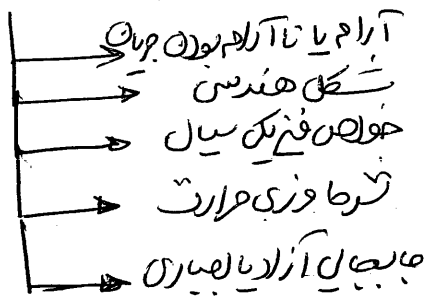 آرام یا ناآرام بودن جریان
شکل هندسی
خواص فیزیکی سیال
شرط مرزی حرارت
جابجایی آزاد یا اجباری